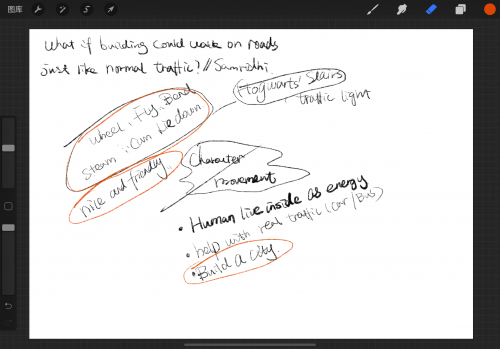 图库
What if building could walk on roads
just like normal traffic? // Samridhi.
Hogwarts' Stairs
traffic light
wheel, Fly, Bend
steam, Can lie down.
nice and friendly
Character
movement
• Human live inside as energy
• help with real traffic (car/Bus)
• Build a city.